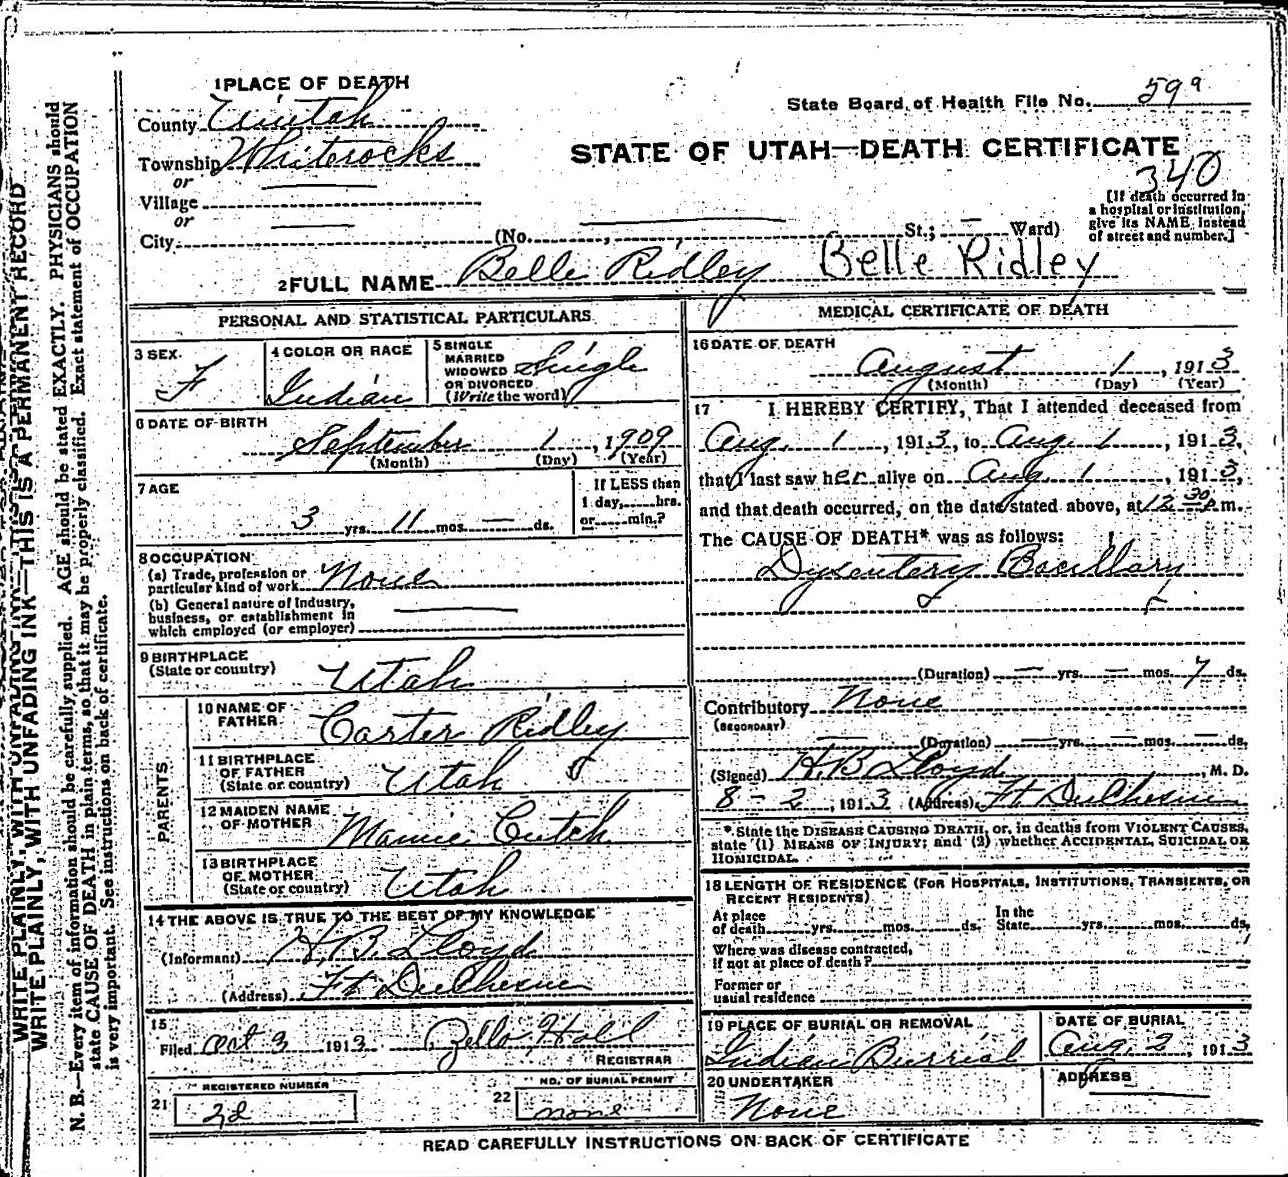 1 PLACE OF DEATH
County Uintah
Township Whiterocks
or
Village
or
City (No. , St.; Ward)
State Board of Health File No. 59a
STATE OF UTAH—DEATH CERTIFICATE
340
[If death occurred in a hospital or institution, give its NAME instead of street and number.]
2 FULL NAME Belle Ridley Belle Ridley
PERSONAL AND STATISTICAL PARTICULARS
3 SEX. F
4 COLOR OR RACE Indian
5 SINGLE MARRIED WIDOWED OR DIVORCED (Write the word) Single
6 DATE OF BIRTH
September 1, 1909
(Month) (Day) (Year)
7 AGE
3 yrs. 11 mos. — ds.
If LESS than 1 day,.....hrs. or.....min.?
8 OCCUPATION
(a) Trade, profession or particular kind of work None
(b) General nature of industry, business, or establishment in which employed (or employer)
9 BIRTHPLACE
(State or country) Utah
PARENTS
10 NAME OF FATHER Carter Ridley
11 BIRTHPLACE OF FATHER (State or country) Utah
12 MAIDEN NAME OF MOTHER Mamie Cutch
13 BIRTHPLACE OF MOTHER (State or country) Utah
14 THE ABOVE IS TRUE TO THE BEST OF MY KNOWLEDGE
(Informant) H.B. Lloyd
(Address) Ft DuChesne
15
Filed Oct 3 1913 Hall
REGISTRAR
REGISTERED NUMBER
21
NO. OF BURIAL PERMIT
22 none
MEDICAL CERTIFICATE OF DEATH
16 DATE OF DEATH
August 1, 1913
(Month) (Day) (Year)
17 I HEREBY CERTIFY, That I attended deceased from
Aug. 1, 1913, to Aug. 1, 1913,
that I last saw her alive on Aug. 1, 1913,
and that death occurred, on the date stated above, at 12 30 p.m.
The CAUSE OF DEATH* was as follows:
Dysentery Bacillary
(Duration) — yrs. — mos. 7 ds.
Contributory None
(SECONDARY)
(Duration) — yrs. — mos. — ds.
(Signed) H.B. Lloyd, M. D.
8 - 2, 1913 (Address) Ft DuChesne
*State the DISEASE CAUSING DEATH, or, in deaths from VIOLENT CAUSES,
state (1) MEANS OF INJURY; and (2) whether ACCIDENTAL, SUICIDAL OR
HOMICIDAL.
18 LENGTH OF RESIDENCE (FOR HOSPITALS, INSTITUTIONS, TRANSIENTS, OR
RECENT RESIDENTS)
At place of death yrs. mos. ds. In the State yrs. mos. ds.
Where was disease contracted,
if not at place of death?
Former or
usual residence
19 PLACE OF BURIAL OR REMOVAL
Indian Burrial
DATE OF BURIAL
Aug. 2, 1913
20 UNDERTAKER
None
ADDRESS
READ CAREFULLY INSTRUCTIONS ON BACK OF CERTIFICATE
WRITE PLAINLY, WITH UNFADING INK—THIS IS A PERMANENT RECORD
N. B.—Every item of information should be carefully supplied. AGE should be stated EXACTLY. PHYSICIANS should
state CAUSE OF DEATH in plain terms, so that it may be properly classified. Exact statement of OCCUPATION
is very important. See instructions on back of certificate.